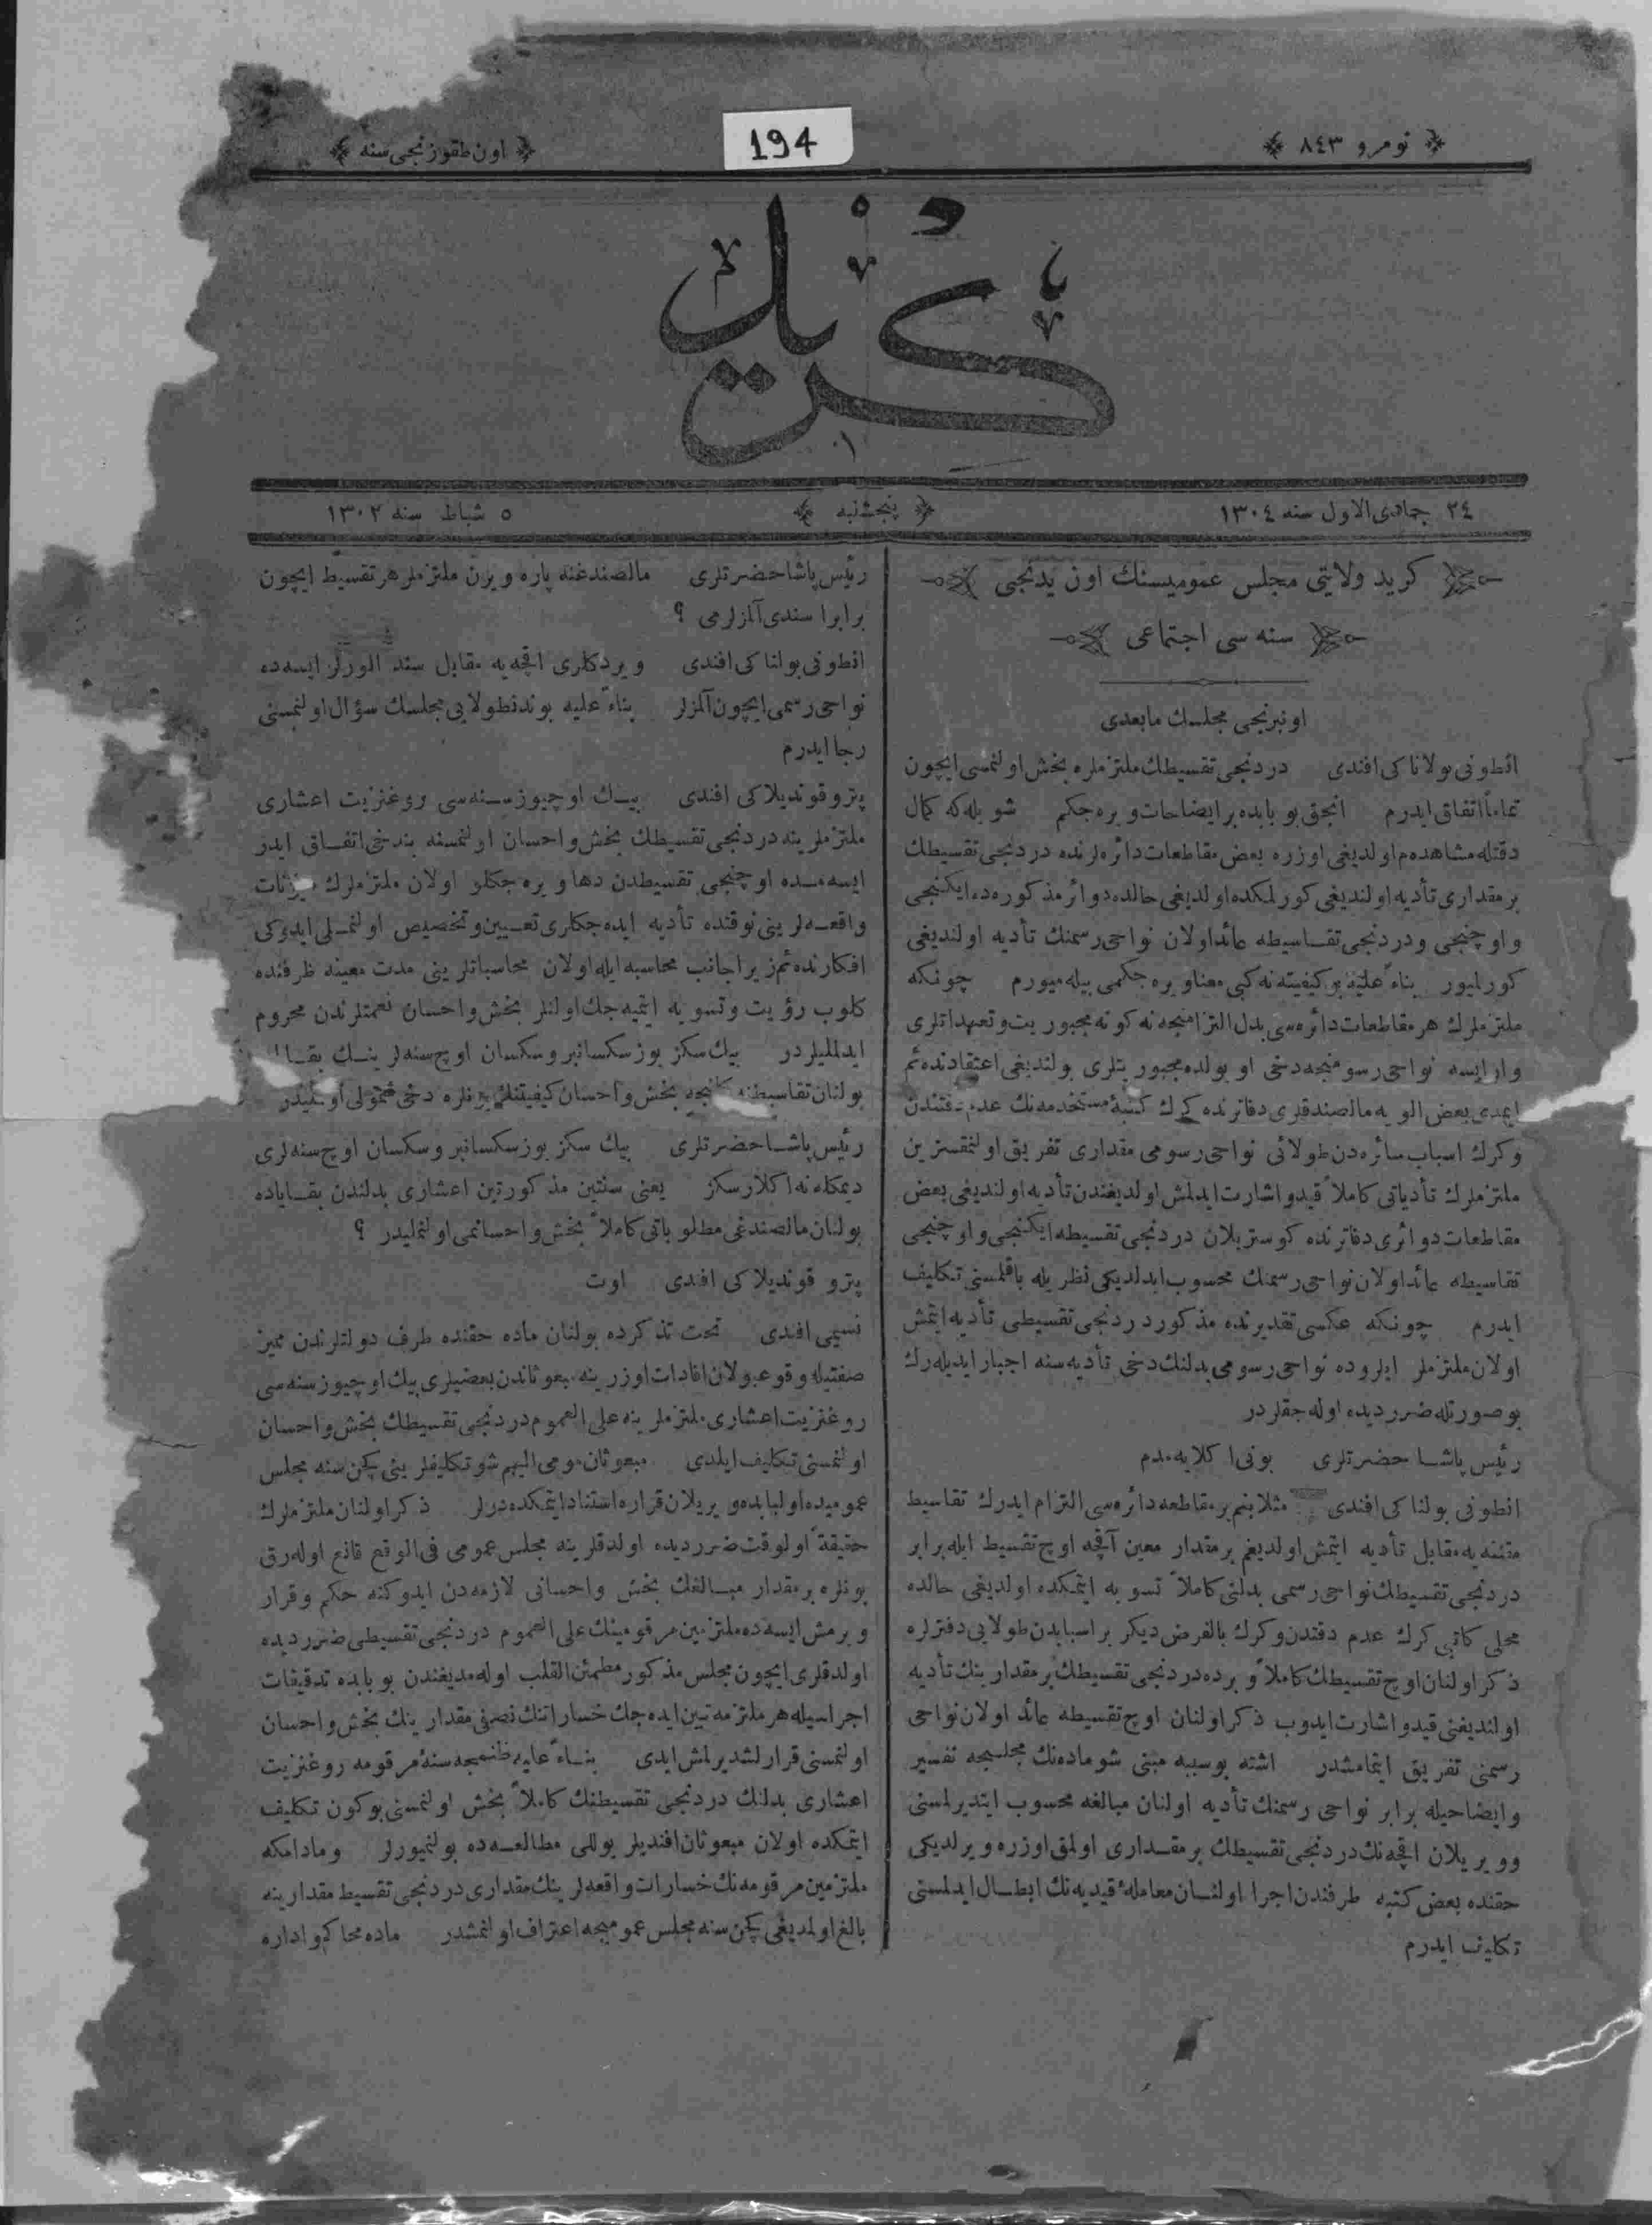 نومرو ٨٤٣
194
اون طقوزنجی سنه
كريد
٢٤ جمادى الاول سنه ١٣٠٤
پنجشنبه
٥ شباط سنه ١٣٠٢
كريد ولايتى مجلس عموميسنك اون يدنجى
سنه سى اجتماعى
اونبرنجى مجلسك مابعدى
انطونى بولاناكى افندى دردنجى تقسيطك ملتزملره بخش اولنمسى ايچون
تماماً اتفاق ايدرم انجق بو بابده بر ايضاحات ويره جكم شويله كه كمال
دقتله مشاهدم اولديغى اوزره بعض مقاطعات دائره لرنده دردنجى تقسيطك
بر مقدارى تأديه اولنديغى كورلمكده اولديغى حالده دوائر مذكوره ده ايكنجى
و اوچنجى و دردنجى تقاسيطه عائد اولان نواحى رسمنك تأديه اولنديغى
كورليور بناءً عليه بو كيفيته نه كبى معنا ويره جكمى بيله ميورم چونكه
ملتزملرك هر مقاطعات دائره سى بدل التزامنجه نه كونه مجبوريت و تعهداتلرى
وار ايسه نواحى رسومنجه دخى او يولده مجبوريتلرى بولنديغى اعتقادنده يم
ايمدى بعض الويه مالصندقلرى دفاترنده كرك كتبهٔ مستخدمه نك عدم دقتندن
و كرك اسباب سائره دن طولائى نواحى رسومى مقدارى تفريق اولنمقسزين
ملتزملرك تأدياتى كاملاً قيد و اشارت ايدلمش اولديغندن تأديه اولنديغى بعض
مقاطعات دوائرى دفاترنده كوستريلان دردنجى تقسيطه ايكنجى و اوچنجى
تقاسيطه عائد اولان نواحى رسمنك محسوب ايدلديكى نظريله باقلمسنى تكليف
ايدرم چونكه عكسى تقديرنده مذكور دردنجى تقسيطى تأديه ايتمش
اولان ملتزملر ايلروده نواحى رسومى بدلنك دخى تأديه سنه اجبار ايديله رك
بو صورتله ضررديده اوله جقلردر
رئيس پاشا حضرتلرى بونى اكلايه مدم
انطونى بولناكى افندى مثلا بنم بر مقاطعه دائره سى التزام ايدرك تقاسيط
مثبته يه مقابل تأديه ايتمش اولديغم بر مقدار معين آقچه اوچ تقسيط ايله برابر
دردنجى تقسيطك نواحى رسمى بدلنى كاملاً تسويه ايتمكده اولديغى حالده
محلى كاتبى كرك عدم دقتدن و كرك بالفرض ديكر بر اسبابدن طولايى دفترلره
ذكر اولنان اوچ تقسيطك كاملاً و برده دردنجى تقسيطك بر مقدارينك تأديه
اولنديغنى قيد و اشارت ايدوب ذكر اولنان اوچ تقسيطه عائد اولان نواحى
رسمنى تفريق ايتمامشدر اشته بو سببه مبنى شو ماده نك مجلسجه تفسير
و ايضاحيله برابر نواحى رسمنك تأديه اولنان مبالغه محسوب ايتديرلمسنى
و ويريلان اقچه نك دردنجى تقسيطك بر مقدارى اولمق اوزره ويرلديكى
حقنده بعض كتبه طرفندن اجرا اولنان معاملهٔ قيديه نك ابطال ايدلمسنى
تكليف ايدرم
رئيس پاشا حضرتلرى مالصندغنه پاره ويرن ملتزملر هر تقسيط ايچون
برابرا سندى آلمازلرمى ؟
انطونى بولناكى افندى ويردكلرى اقچه يه مقابل سند الورلر ايسه ده
نواحى رسمى ايچون آلمازلر بناءً عليه بوندن طولايى مجلسك سؤال اولنمسنى
رجا ايدرم
پترو قونديلاكى افندى بيك اوچيوز سنه سى روغنزيت اعشارى
ملتزملرينه دردنجى تقسيطك بخش و احسان اولنمسنه بن دخى اتفاق ايدر
ايسه مده اوچنجى تقسيطدن دها ويره جكلو اولان ملتزملرك
واقعه لرينى نه وقنده تأديه ايده جكلرى تعيين و تخصيص اولنملى ايدوكى
افكارنده يم زيرا جانب محاسبه ايله اولان محاسباتلرينى مدت معينه ظرفنده
كلوب رؤيت و تسويه ايتميه جك اولنلر بخش و احسان نعمتلرندن محروم
ايدلمليلردر بيك سكز يوز سكسانبر و سكسان اوچ سنه لرينك
بولنان بخش و احسان كيفيتنك بونلره دخى شمولى اولمليدر
رئيس پاشا حضرتلرى بيك سكز يوز سكسانبر و سكسان اوچ سنه لرى
ديمكله نه اكلارسكز يعنى سنتين مذكورتين اعشارى بدلندن بقاياده
بولنان مالصندغى مطلوباتى كاملاً بخش و احسانمى اولنمليدر ؟
پترو قونديلاكى افندى اوت
نسيمى افندى تحت تذكرده بولنان ماده حقنده طرف دولتلرندن مميز
صفتيله وقوعبولان افادات اوزرينه مبعوثاندن بعضيلرى بيك اوچيوز سنه سى
روغنزيت اعشارى ملتزملرينه على العموم دردنجى تقسيطك بخش و احسان
اولنمسنى تكليف ايلدى مبعوثان مومى اليهم شو تكليفلرينى كچن سنه مجلس
عموميده اولبابده ويريلان قراره استناد ايتمكده درلر ذكر اولنان ملتزملرك
حقيقةً اولوقت ضررديده اولدقلرينه مجلس عمومى فى الواقع قانع اوله رق
بونلره بر مقدار مبالغك بخش و احسانى لازمه دن ايدوكنه حكم و قرار
ويرمش ايسه ده ملتزمين مرقومينك على العموم دردنجى تقسيطى ضررديده
اولدقلرى ايچون مجلس مذكور مطمئن القلب اوله مديغندن بو بابده تدقيقات
اجراسيله هر ملتزمه تبين ايده جك خساراتنك نصفى مقدارينك بخش و احسان
اولنمسنى قرارلشديرلمش ايدى بناءً عليه ظنمجه سنهٔ مرقومه روغنزيت
اعشارى بدلنك دردنجى تقسيطنك كاملاً بخش اولنمسنى بوكون تكليف
ايتمكده اولان مبعوثان افنديلر يوللى مطالعه ده بولنميورلر و مادامكه
ملتزمين مرقومه نك خسارات واقعه لرينك مقدارى دردنجى تقسيط مقدارينه
بالغ اولمديغى كچن سنه مجلس عموميجه اعتراف اولنمشدر ماده محاكم و اداره